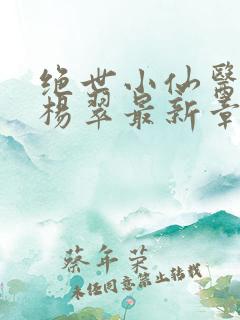 绝世小仙醫
楊翠最新章
蔡年荣
未经同意禁止转载